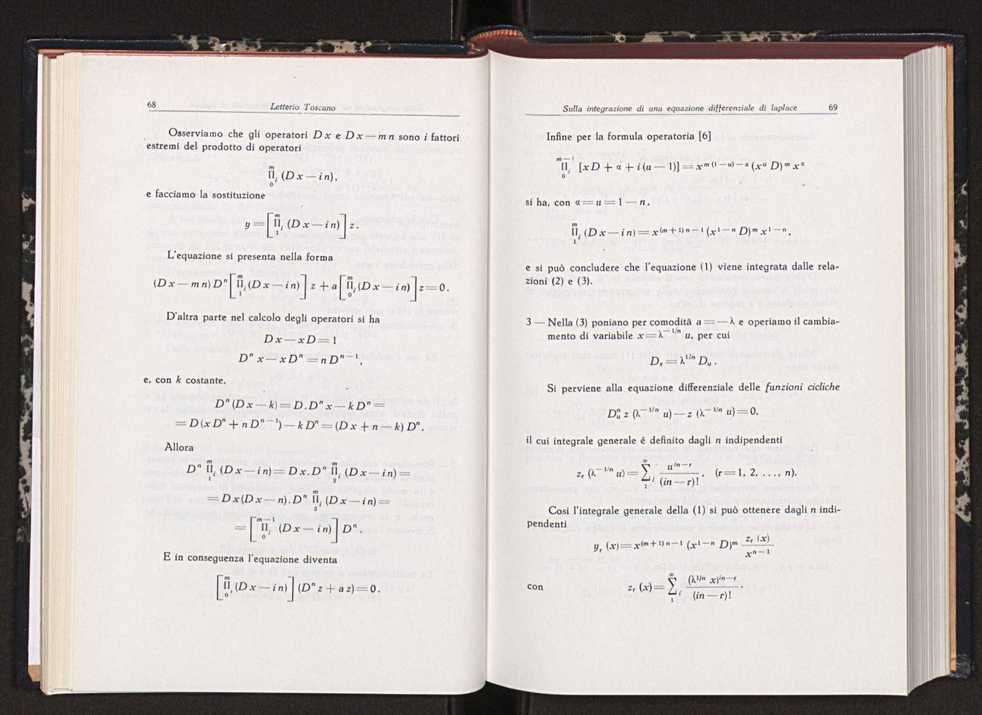 68 Letterio Toscano
Osserviamo che gli operatori D x e D x — m n sono i fattori
estremi del prodotto di operatori
m Π i 0 (D x — i n),
e facciamo la sostituzione
y = [ m Π i 1 (D x — i n) ] z.
L'equazione si presenta nella forma
(D x — m n) Dⁿ [ m Π i 1 (D x — i n) ] z + a [ m Π i 0 (D x — i n) ] z = 0.
D'altra parte nel calcolo degli operatori si ha
D x — x D = 1
Dⁿ x — x Dⁿ = n Dⁿ⁻¹,
e, con k costante,
Dⁿ (D x — k) = D . Dⁿ x — k Dⁿ =
= D (x Dⁿ + n Dⁿ⁻¹) — k Dⁿ = (D x + n — k) Dⁿ.
Allora
Dⁿ m Π i 1 (D x — i n) = D x . Dⁿ m Π i 2 (D x — i n) =
= D x (D x — n) . Dⁿ m Π i 3 (D x — i n) =
= [ m—1 Π i 0 (D x — i n) ] Dⁿ.
E in conseguenza l'equazione diventa
[ m Π i 0 (D x — i n) ] (Dⁿ z + a z) = 0.
Sulla integrazione di una equazione differenziale di laplace 69
Infine per la formula operatoria [6]
m—1 Π i 0 [x D + α + i (u — 1)] = x^{m (1 — u) — α} (x^u D)^m x^α
si ha, con α = u = 1 — n,
m Π i 1 (D x — i n) = x^{(m + 1) n — 1} (x^{1 — n} D)^m x^{1 — n},
e si può concludere che l'equazione (1) viene integrata dalle rela-
zioni (2) e (3).
3 — Nella (3) poniano per comodità a = — λ e operiamo il cambia-
mento di variabile x = λ^{— 1/n} u, per cui
D_x = λ^{1/n} D_u.
Si perviene alla equazione differenziale delle funzioni cicliche
D_u^n z (λ^{— 1/n} u) — z (λ^{— 1/n} u) = 0,
il cui integrale generale é definito dagli n indipendenti
z_r (λ^{— 1/n} u) = ∞ Σ i 1 u^{in — r} / (in — r)! , (r = 1, 2, . . ., n).
Cosi l'integrale generale della (1) si può ottenere dagli n indi-
pendenti
y_r (x) = x^{(m + 1) n — 1} (x^{1 — n} D)^m z_r (x) / x^{n — 1}
con z_r (x) = ∞ Σ i 1 (λ^{1/n} x)^{in — r} / (in — r)! .